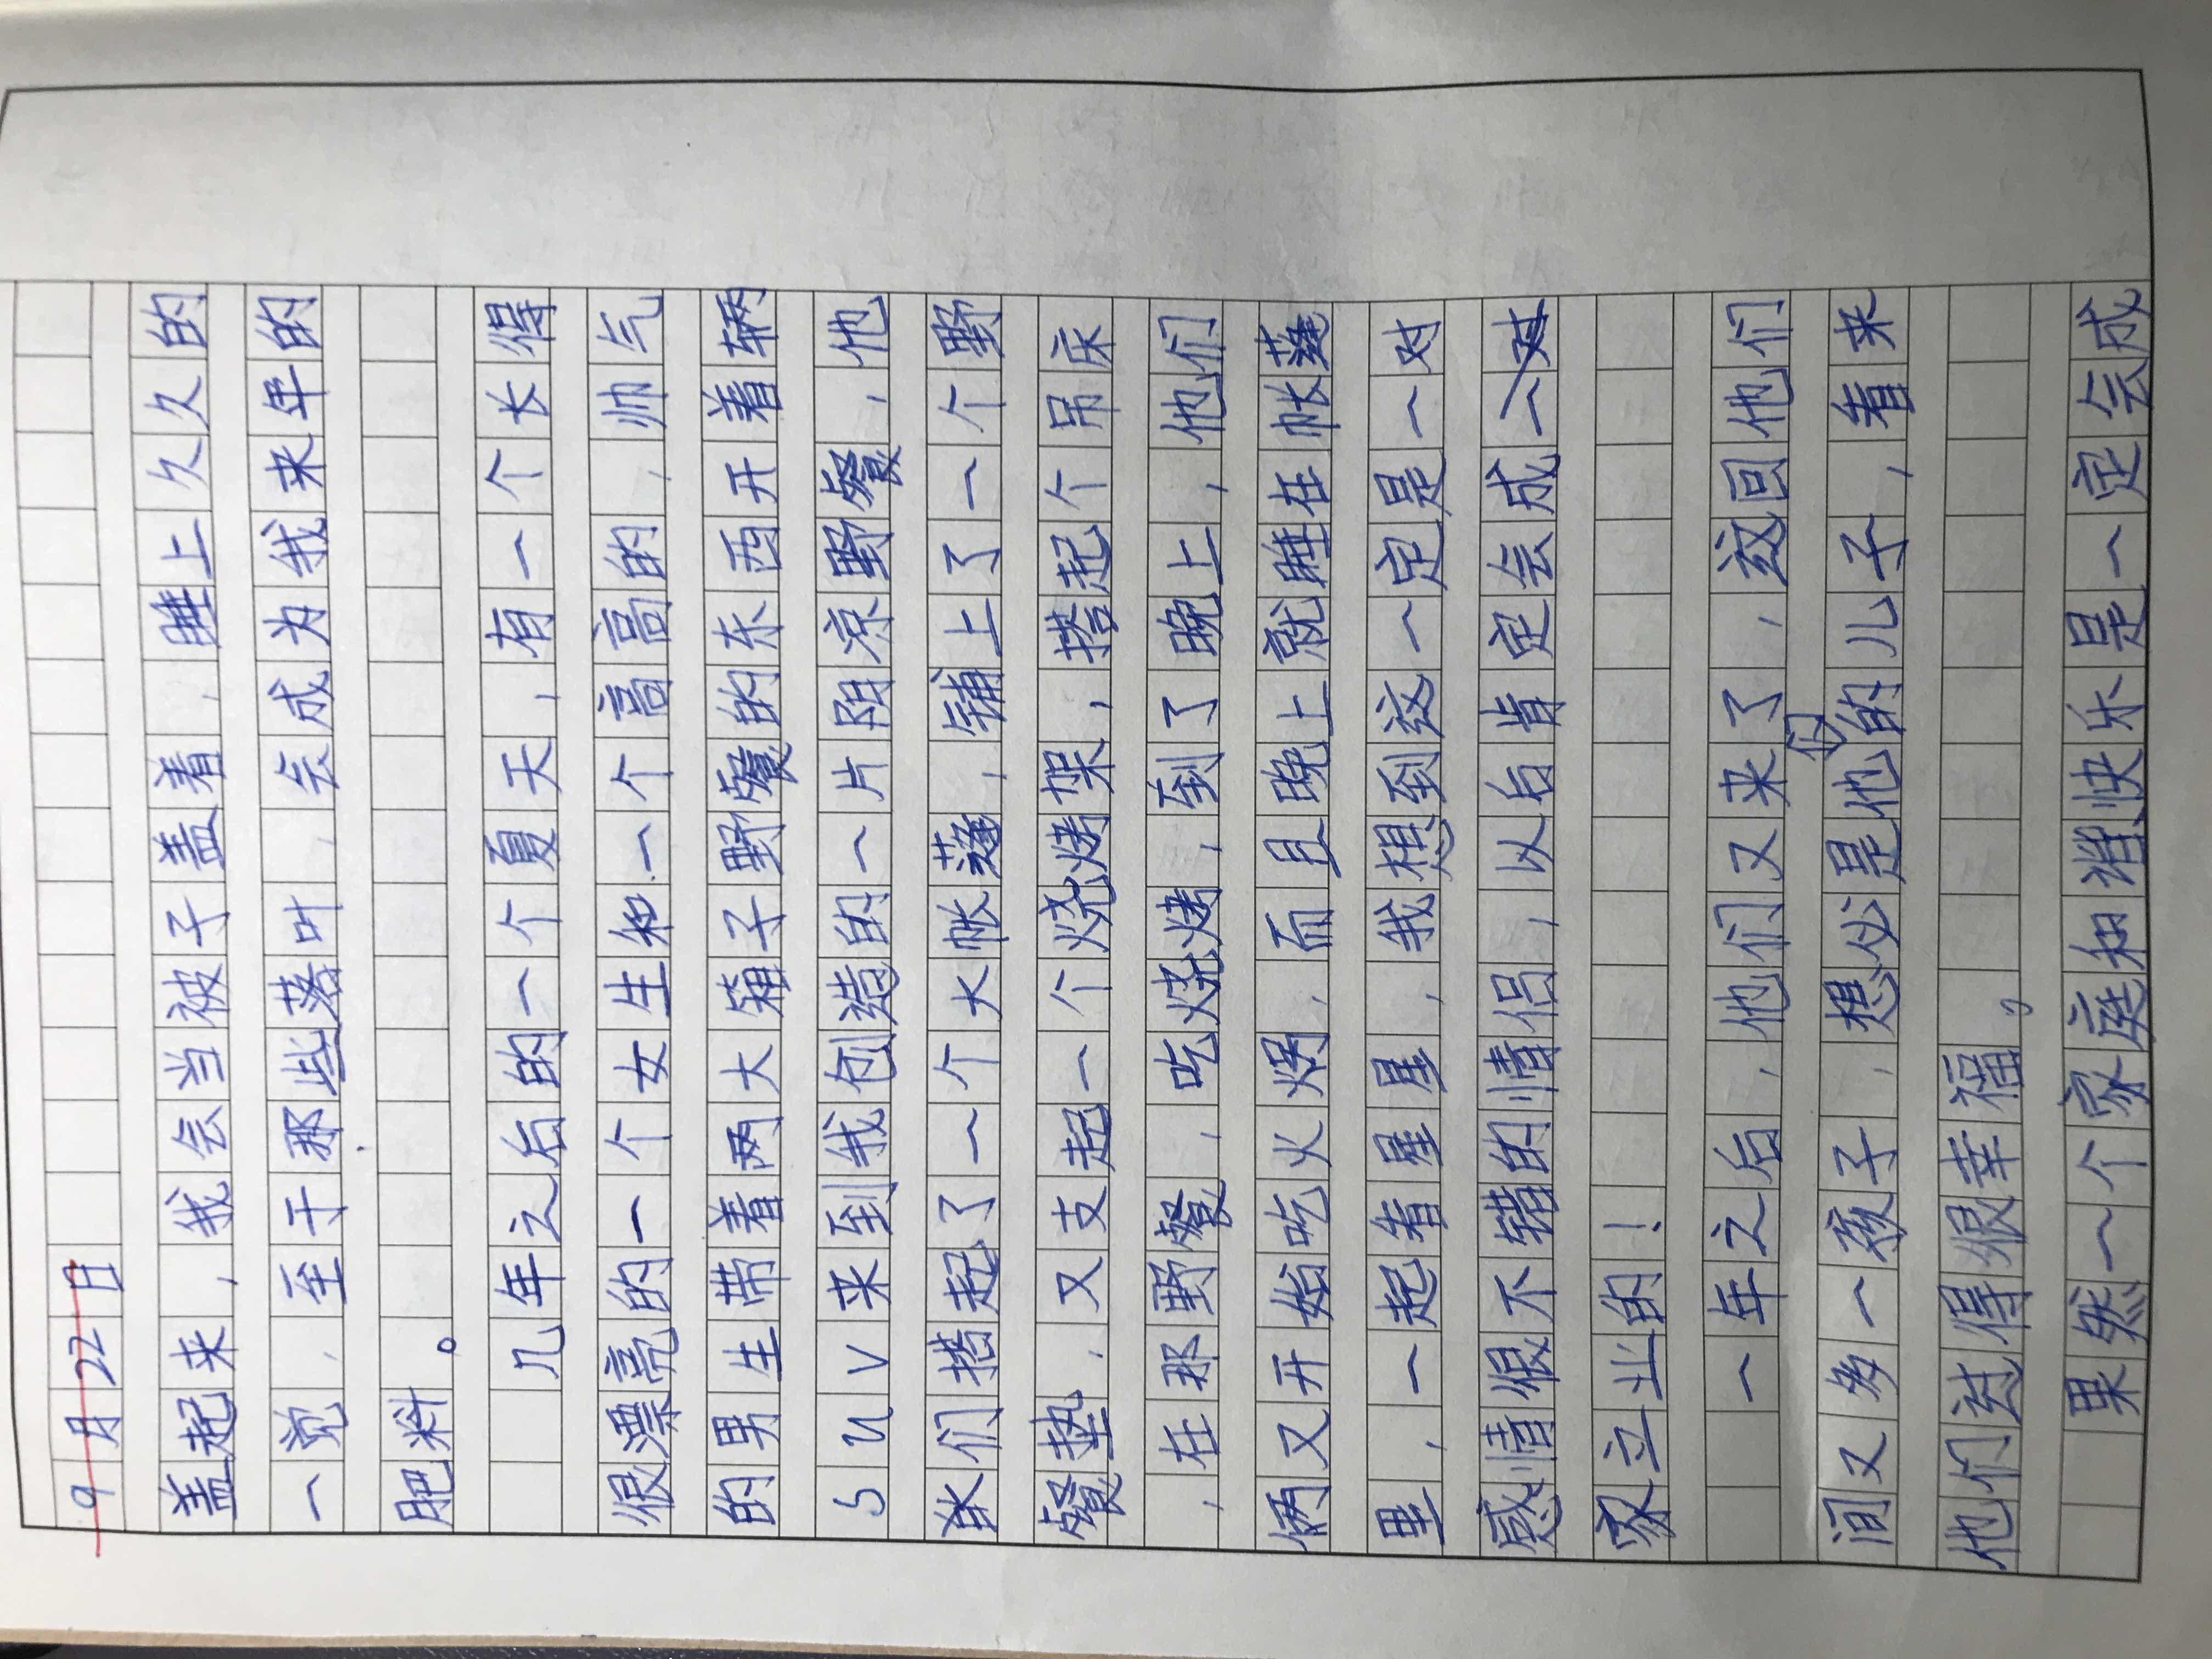 9月22日
盖起来，我会当被子盖着，睡上久久的
一觉，至于那些落叶，会成为我来年的
肥料。
几年之后的一个夏天，有一个长得
很漂亮的一个女生和一个高高的，帅气
的男生带着两大箱子野餐的东西开着辆
SUV来到我创造的一片阴凉野餐，他
们搭起了一个大帐蓬，铺上了一个野
餐垫，又支起一个烧烤架，搭起个吊床
，在那野餐，吃烧烤，到了晚上，他们
俩又开始吃火锅，而且晚上就睡在帐蓬
里，一起看星星，我想到这一定是一对
感情很不错的情侣，以后肯定会成一对
家立业的！
一年之后，他们又来了，这回他们
间又多一孩子，想必是他们的儿子，看来
他们过得很幸福。
果然一个家庭和谐快乐是一定会成